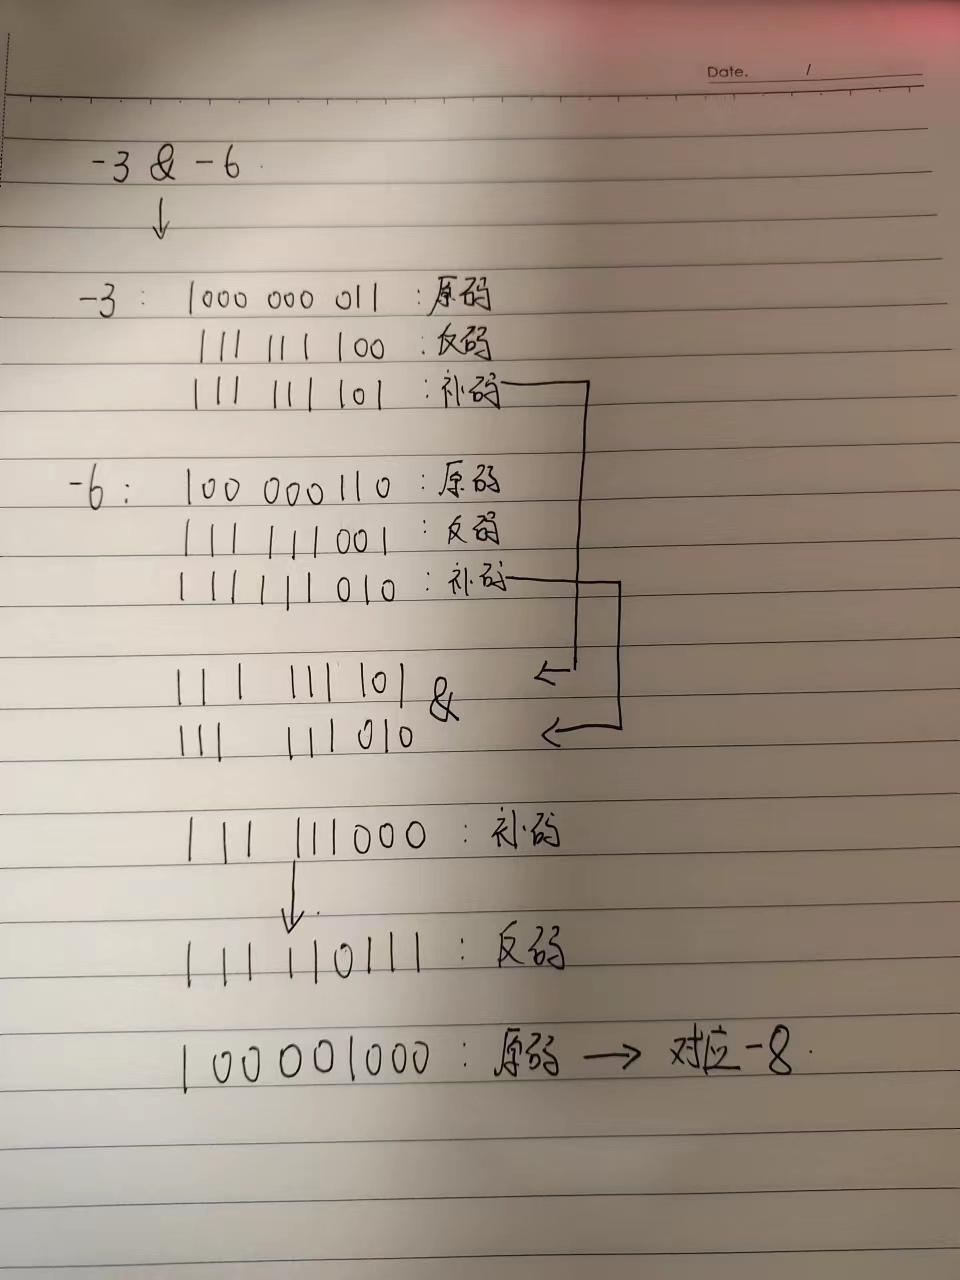 Date. /
-3 & -6
-3 : 1000 000 011 : 原码
111 111 100 : 反码
111 111 101 : 补码
-6 : 100 000 110 : 原码
111 111 001 : 反码
111 111 010 : 补码
111 111 101 &
111 111 010
111 111 000 : 补码
111 110 111 : 反码
100001000 : 原码 → 对应 -8.